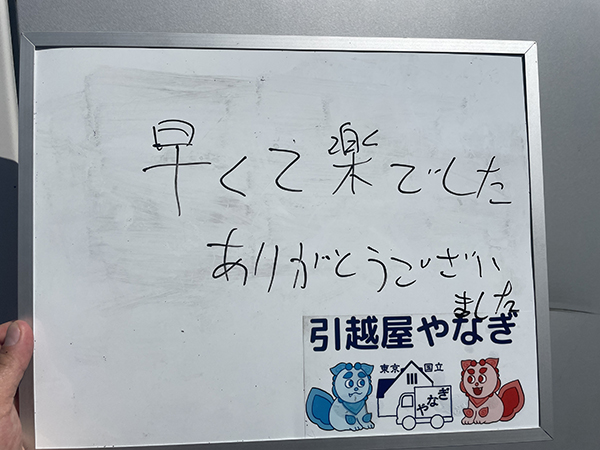 早くて楽でした
ありがとうござい
ました
引越屋やなぎ
東京 国立
やなぎ